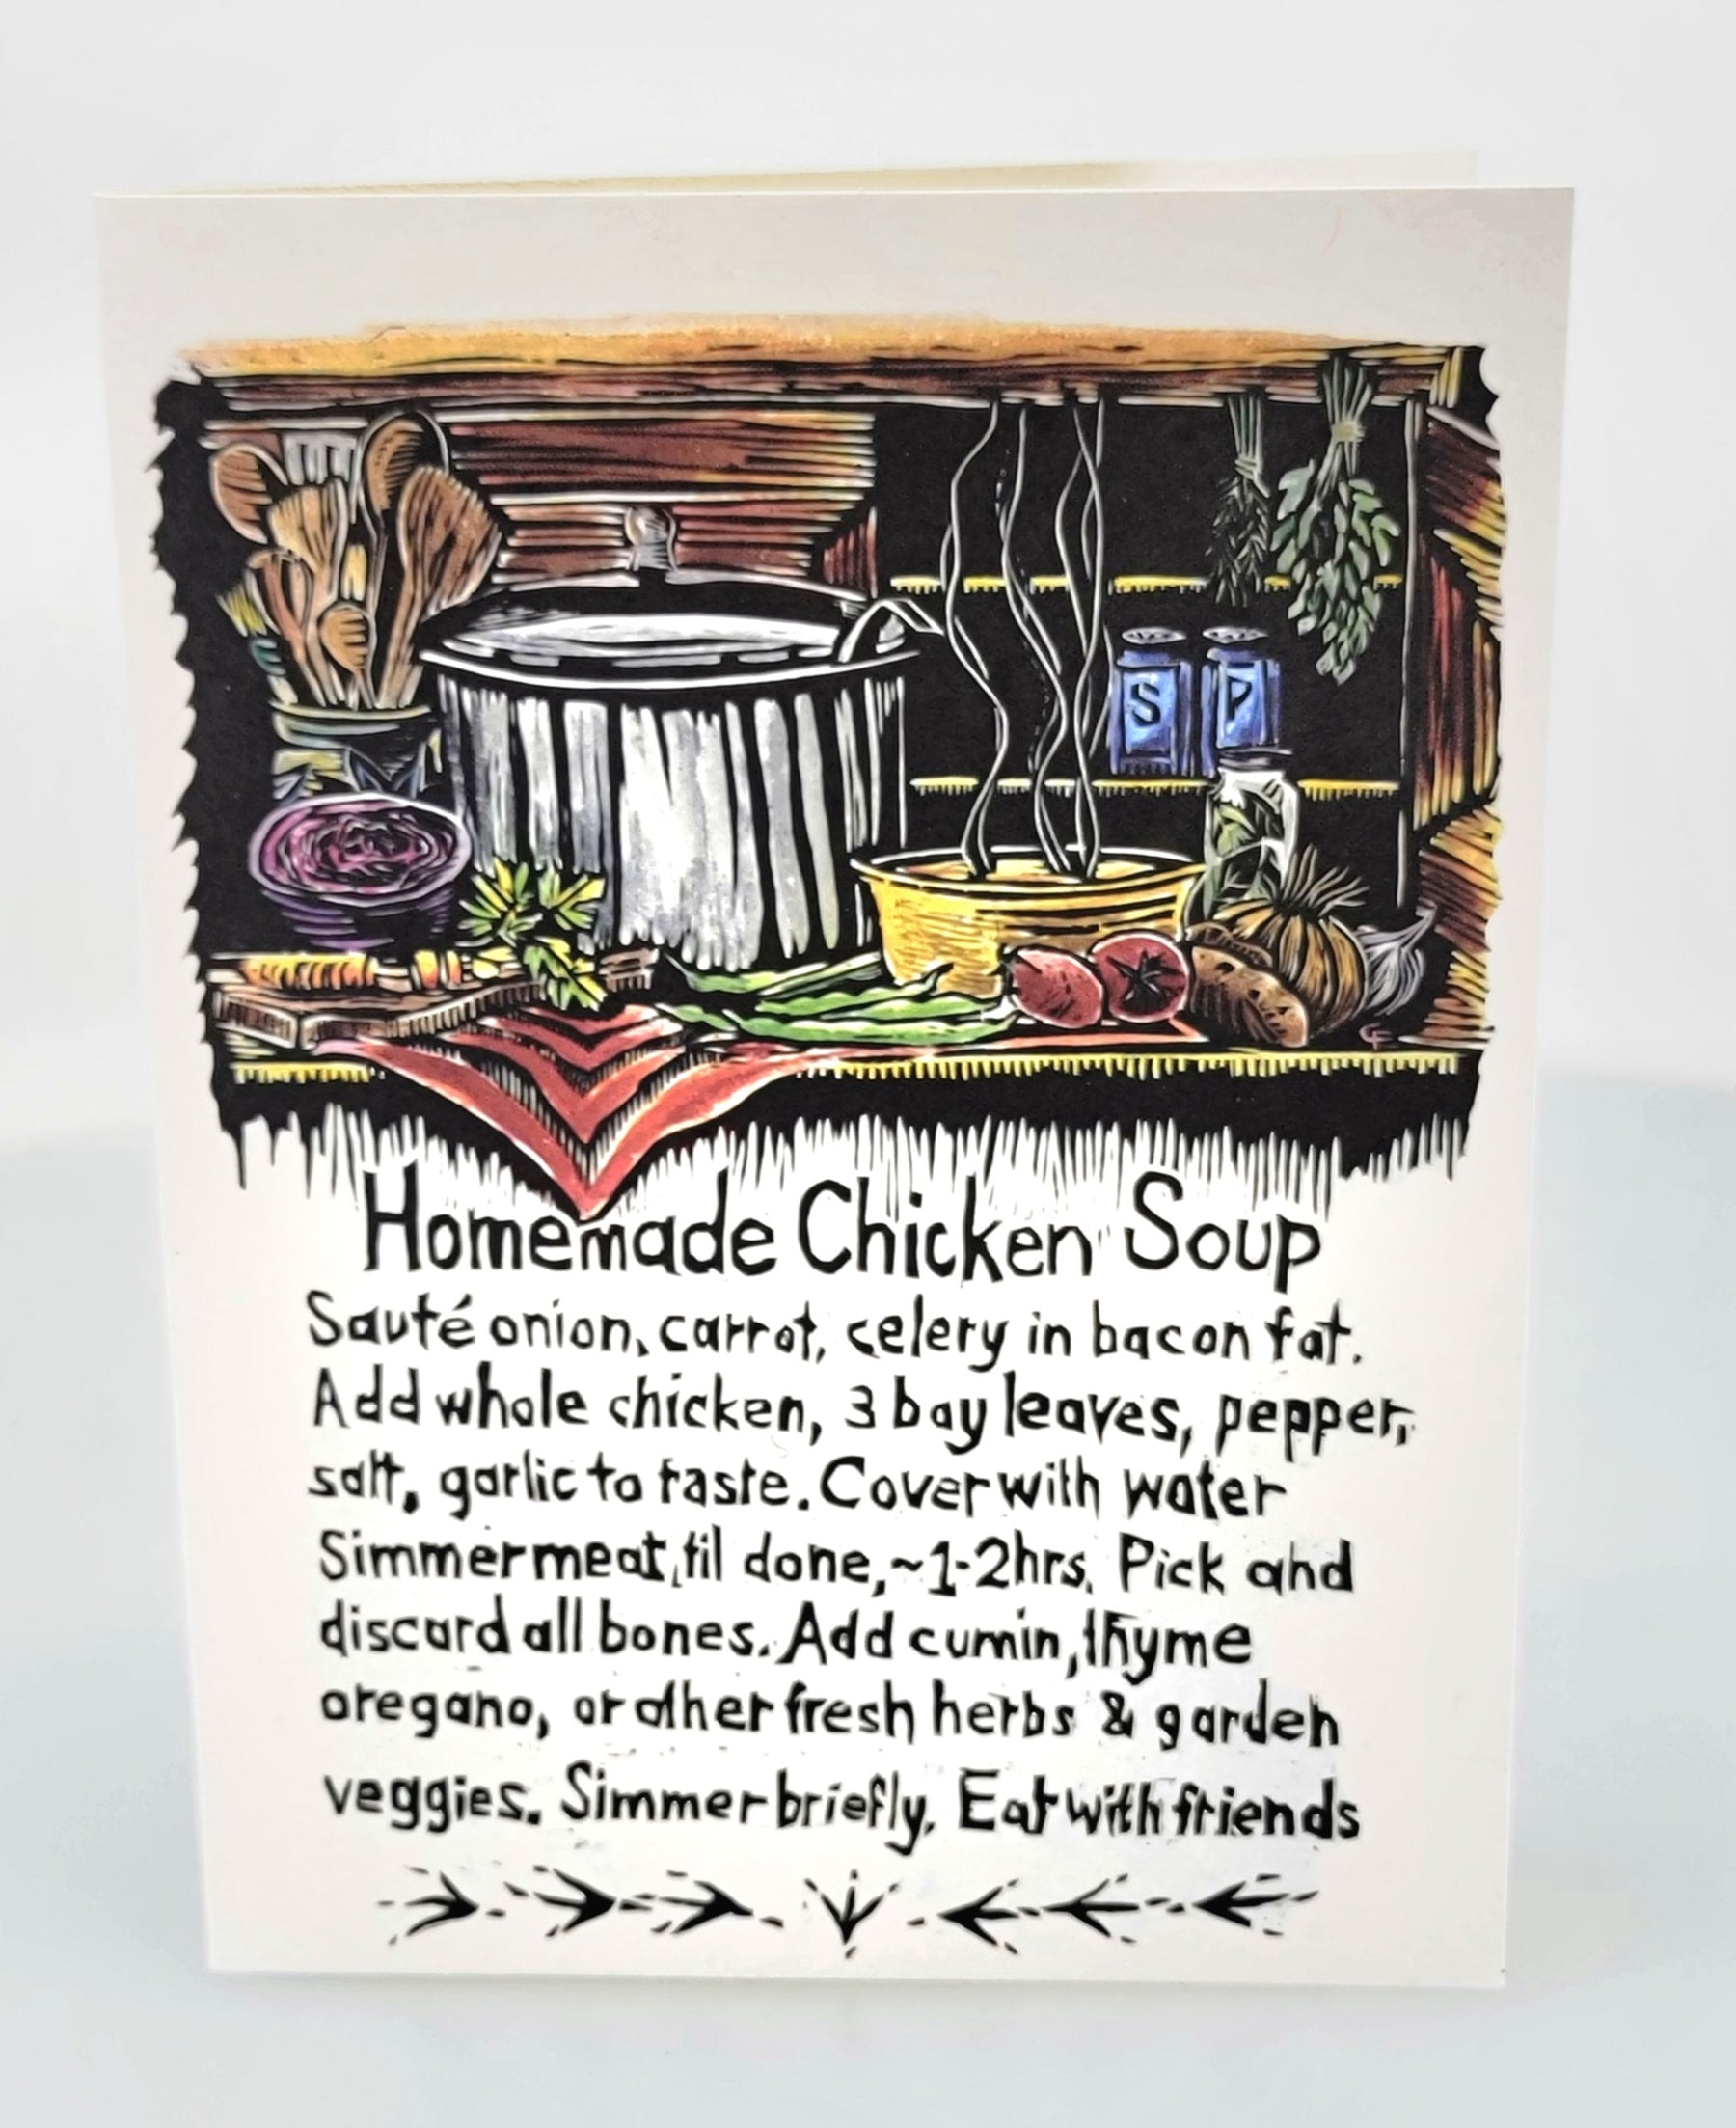 S P
Homemade Chicken Soup
Sauté onion, carrot, celery in bacon fat.
Add whole chicken, 3 bay leaves, pepper,
salt, garlic to taste. Cover with water
Simmer meat, til done, ~1-2hrs. Pick and
discard all bones. Add cumin, thyme
oregano, or other fresh herbs & garden
veggies. Simmer briefly. Eat with friends